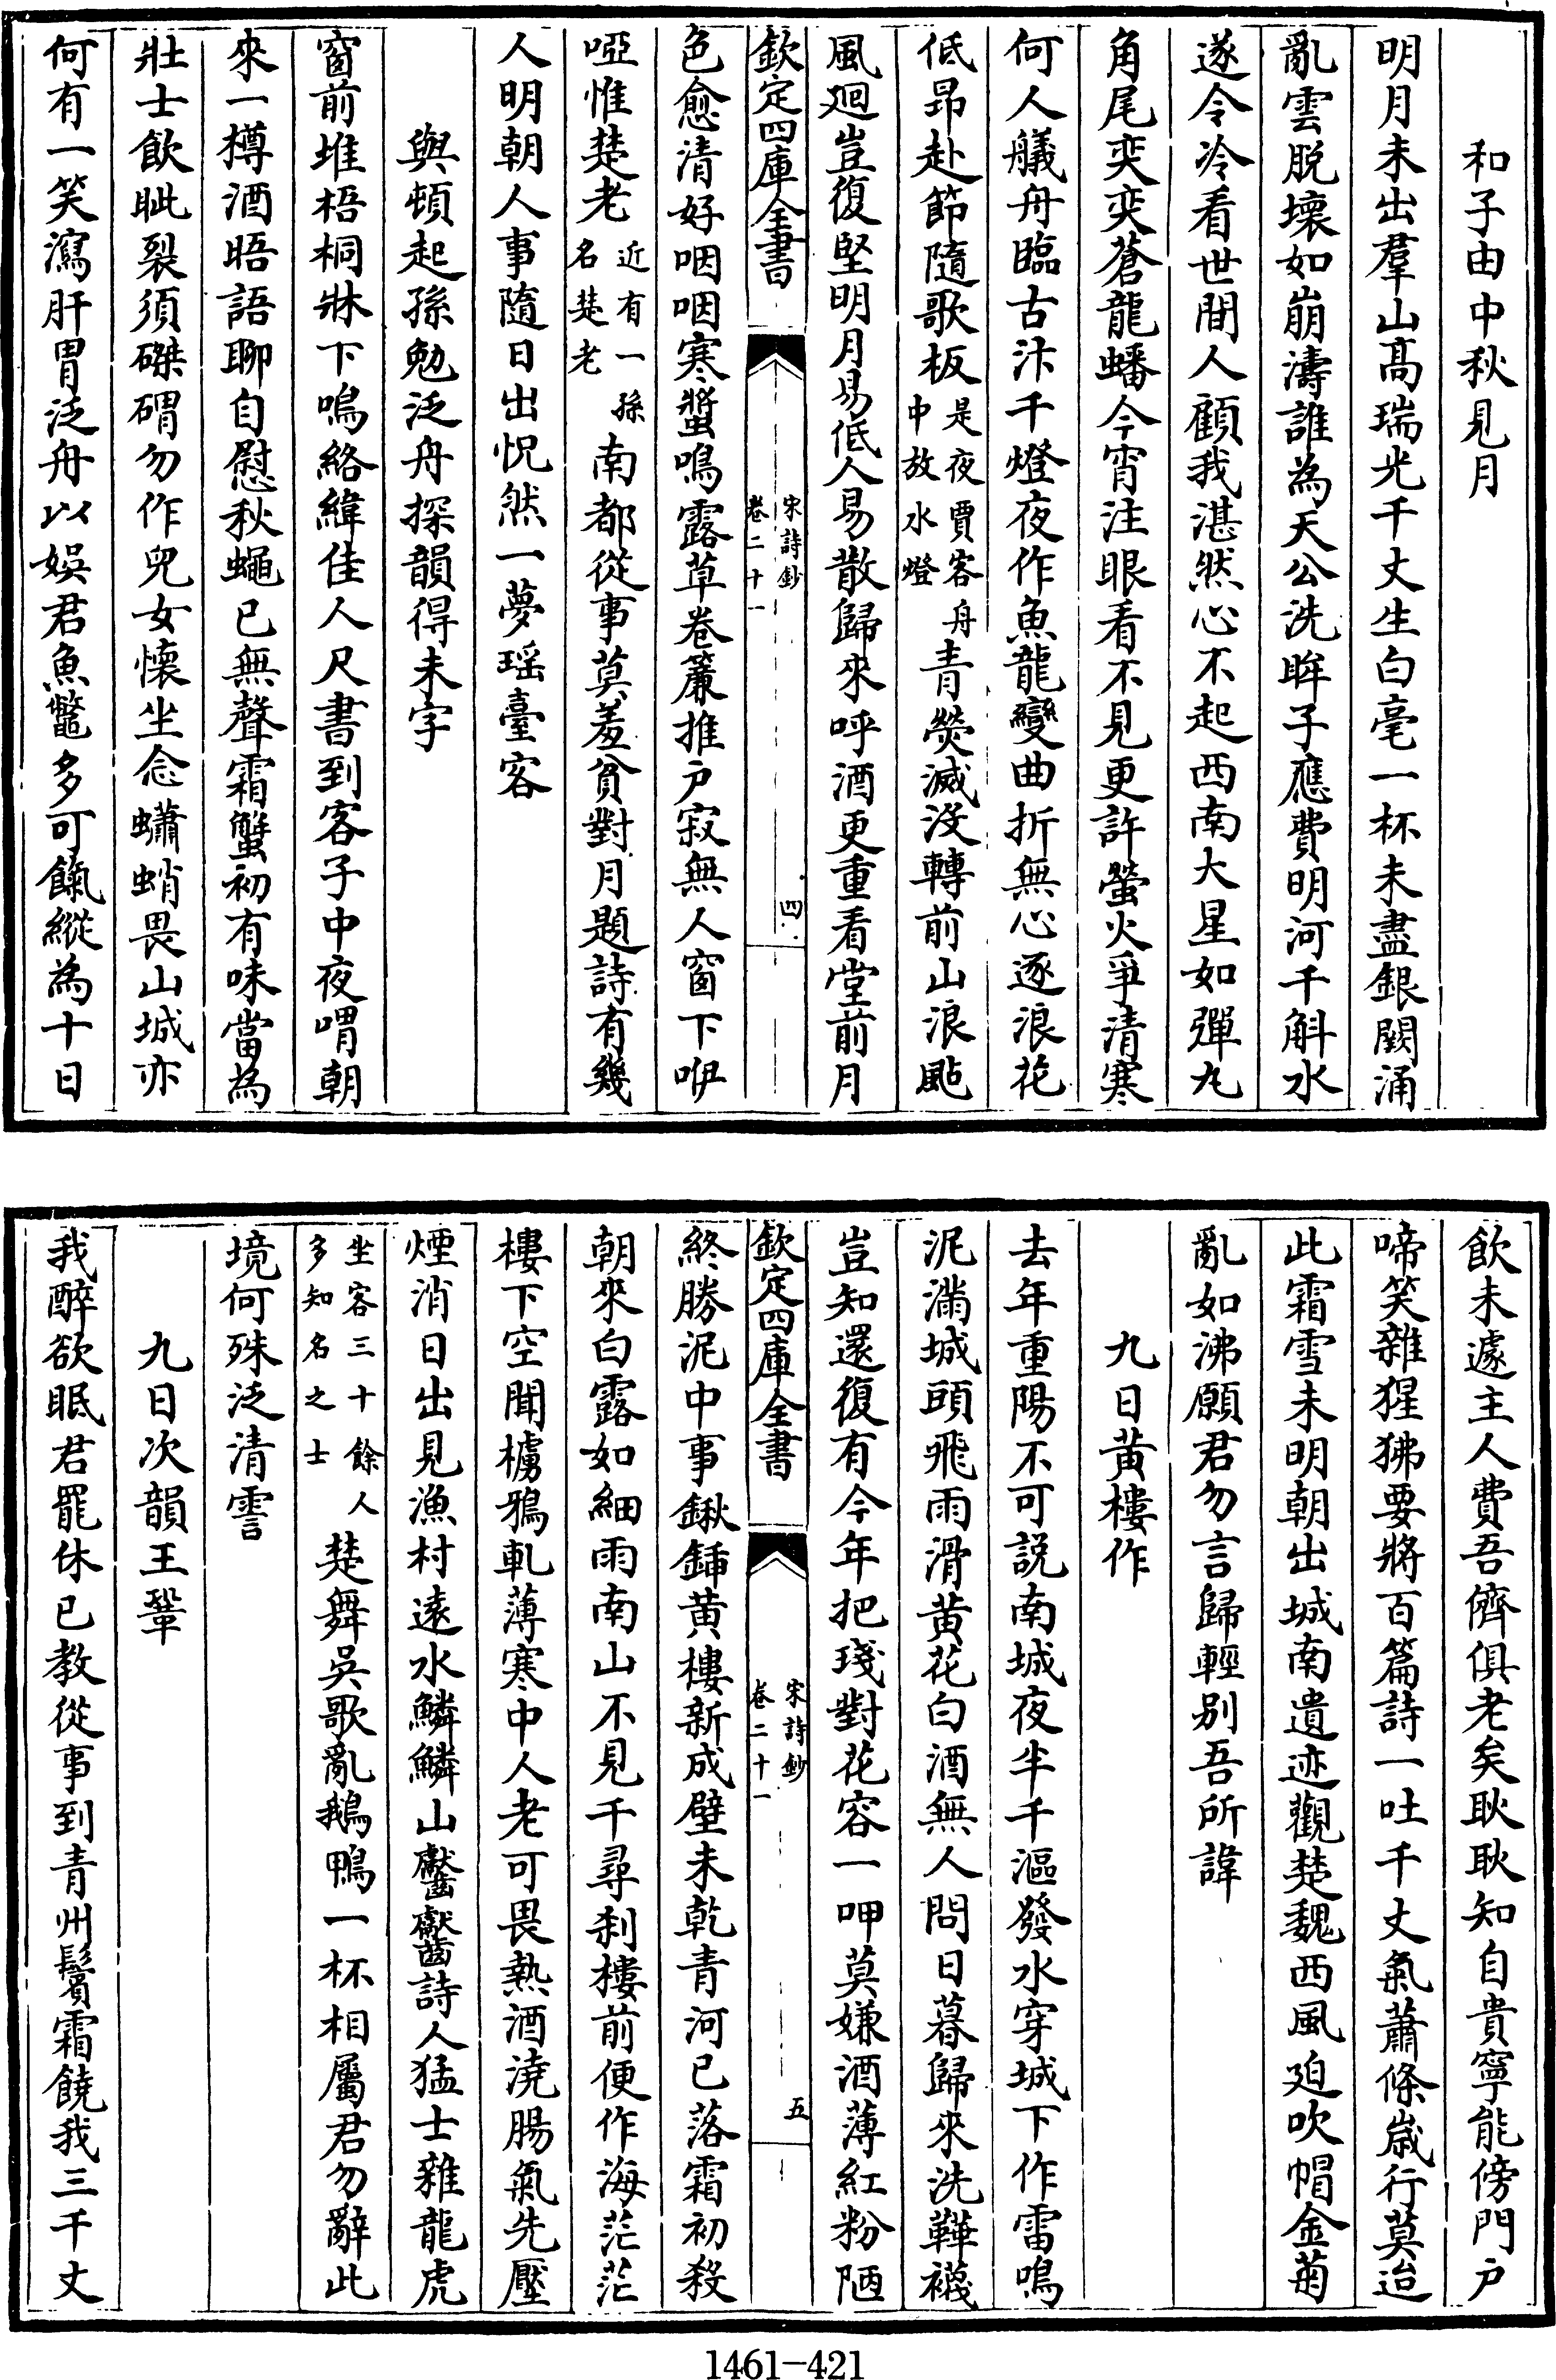 和子由中秋見月
明月未出羣山髙瑞光千丈生白毫一杯未盡銀闕涌
亂雲脱壊如崩濤誰為天公洗眸子應費明河千斛水
遂令冷看世間人顧我湛然心不起西南大星如彈丸
角尾奕奕蒼龍蟠今宵注眼看不見更許螢火爭清寒
何人艤舟臨古汴千燈夜作魚龍變曲折無心逐浪花
低昂赴節隨歌板是夜賈客舟中放水燈青熒滅没轉前山浪颭
風廻豈復堅明月易低人易散歸來呼酒更重看堂前月
欽定四庫全書
宋詩鈔
卷二十一
四
色愈清好咽咽寒螿鳴露草卷簾推户寂無人窗下咿
啞惟楚老近有一孫名楚老南都從事莫羞貧對月題詩有幾
人明朝人事隨日出怳然一夢瑶臺客
與頓起孫勉泛舟探韻得未字
窗前堆梧桐牀下鳴絡緯佳人尺書到客子中夜喟朝
來一樽酒晤語聊自慰秋蠅已無聲霜蟹初有味當為
壯士飲眦裂須磔磵勿作兒女懷坐念蠨蛸畏山城亦
何有一笑瀉肝胃泛舟以娱君魚鼈多可餼縱為十日
飲未遽主人費吾儕俱老矣耿耿知自貴寧能傍門户
啼笑雜猩狒要將百篇詩一吐千丈氣蕭條嵗行莫迨
此霜雪未明朝出城南遺迹觀楚魏西風迫吹帽金菊
亂如沸願君勿言歸輕别吾所諱
九日黄樓作
去年重陽不可説南城夜半千漚發水穿城下作雷鳴
泥滿城頭飛雨滑黄花白酒無人問日暮歸來洗鞾襪
豈知還復有今年把琖對花容一呷莫嫌酒薄紅粉陋
欽定四庫全書
宋詩鈔
卷二十一
五
終勝泥中事鍬鍤黄樓新成壁未乾青河已落霜初殺
朝來白露如細雨南山不見千尋刹樓前便作海茫茫
樓下空聞櫓鴉軋薄寒中人老可畏熱酒澆腸氣先壓
煙消日出見漁村逺水鱗鱗山齾齾詩人猛士雜龍虎
坐客三十餘人多知名之士楚舞吳歌亂鵝鴨一杯相屬君勿辭此
境何殊泛清霅
九日次韻王鞏
我醉欲眠君罷休已教從事到青州鬢霜饒我三千丈
1461-421